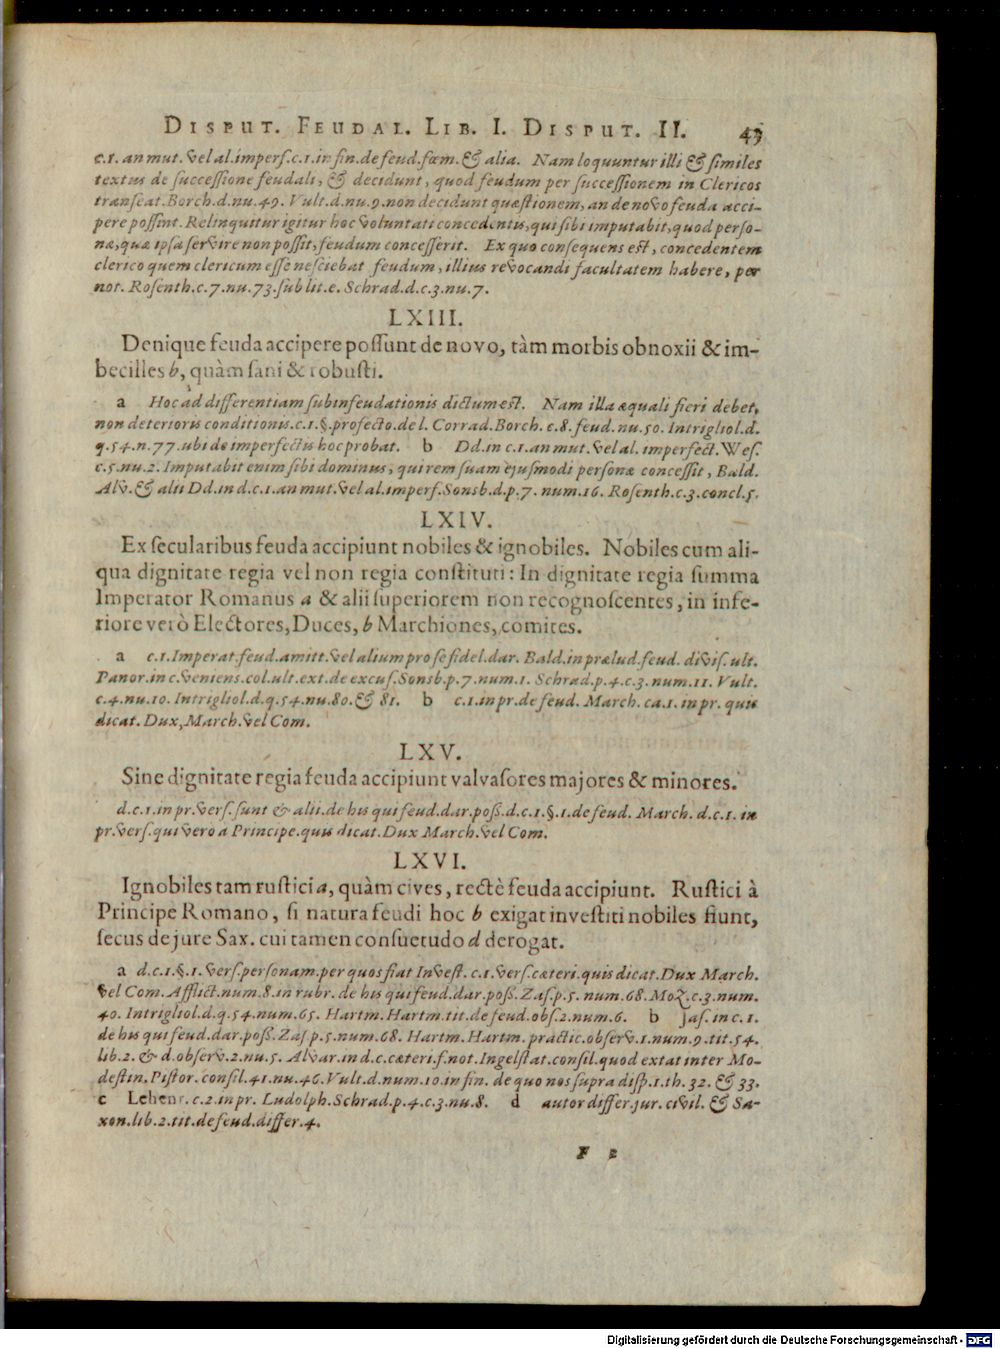 DISPUT. FEUDAL. LIB. I. DISPUT. II. 43
c.1. an mut. vel al. imperf. c.1. in fin. de feud. fœm. & alia. Nam loquuntur illi & similes
textus de successione feudali, & decidunt, quod feudum per successionem in Clericos
transeat. Borch. d. nu. 49. Vult. d. nu. 9. non decidunt quæstionem, an de novo feuda acci-
pere possint. Relinquitur igitur hoc voluntati concedentis, qui sibi imputabit, quod perso-
næ, quæ ipsa servire non possit, feudum concesserit. Ex quo consequens est, concedentem
clerico quem clericum esse nesciebat feudum, illius revocandi facultatem habere, per
not. Rosenth. c. 7. nu. 73. sub lit. e. Schrad. d. c. 3. nu. 7.
LXIII.
Denique feuda accipere possunt de novo, tàm morbis obnoxii & im-
becilles b, quàm sani & robusti.
a Hoc ad differentiam subinfeudationis dictum est. Nam illa æquali fieri debet,
non deterioris conditionis. c. 1. §. profecto. de l. Corrad. Borch. c. 8. feud. nu. 50. Intrigliol. d.
q. 54. n. 77. ubi de imperfectis hoc probat. b Dd. in c. 1. an mut. vel al. imperfect. Wes.
c. 5. nu. 2. Imputabit enim sibi dominus, qui rem suam ejusmodi personæ concessit, Bald.
Alv. & alii Dd. in d. c. 1. an mut. vel al. imperf. Sonsb. d. p. 7. num. 16. Rosenth. c. 3. concl. 5.
LXIV.
Ex secularibus feuda accipiunt nobiles & ignobiles. Nobiles cum ali-
qua dignitate regia vel non regia constituti: In dignitate regia summa
Imperator Romanus a & alii superiorem non recognoscentes, in infe-
riore verò Electores, Duces, b Marchiones, comites.
a c. 1. Imperat. feud. amitt. vel alium pro se fidel. dar. Bald. in prælud. feud. divis. ult.
Panor. in c. veniens. col. ult. ext. de excus. Sonsb. p. 7. num. 1. Schrad. p. 4. c. 3. num. 11. Vult.
c. 4. nu. 10. Intrigliol. d. q. 54. nu. 80. & 81. b c. 1. in pr. de feud. March. ca. 1. in pr. quis
dicat. Dux, March. vel Com.
LXV.
Sine dignitate regia feuda accipiunt valvasores majores & minores.
d. c. 1. in pr. vers. sunt & alii. de his qui feud. dar. poß. d. c. 1. §. 1. de feud. March. d. c. 1. in
pr. vers. qui vero a Principe. quis dicat. Dux March. vel Com.
LXVI.
Ignobiles tam rustici a, quàm cives, rectè feuda accipiunt. Rustici à
Principe Romano, si natura feudi hoc b exigat investiti nobiles fiunt,
secus de jure Sax. cui tamen consuetudo d derogat.
a d. c. 1. §. 1. vers. personam. per quos fiat Invest. c. 1. vers. cæteri. quis dicat. Dux March.
vel Com. Afflict. num. 8. in rubr. de his qui feud. dar. poß. Zas. p. 5. num. 68. Moz. c. 3. num.
40. Intrigliol. d. q. 54. num. 65. Hartm. Hartm. tit. de feud. obs. 2. num. 6. b Jas. in c. 1.
de his qui feud. dar. poß. Zas p. 5. num. 68. Hartm. Hartm. practic. observ. 1. num. 9. tit. 54.
lib. 2. & d. observ. 2. nu. 5. Alvar. in d. c. cæteri. f. not. Ingelstat. consil. quod extat inter Mo-
destin. Pistor. consil. 41. nu. 46. Vult. d. num. 10. in fin. de quo nos supra disp. 1. th. 32. & 33.
c Lehenr. c. 2. in pr. Ludolph. Schrad. p. 4. c. 3. nu. 8. d autor differ. jur. civil. & Sa-
xon. lib. 2. tit. de feud. differ. 4.
F 2
Digitalisierung gefördert durch die Deutsche Forschungsgemeinschaft - DFG